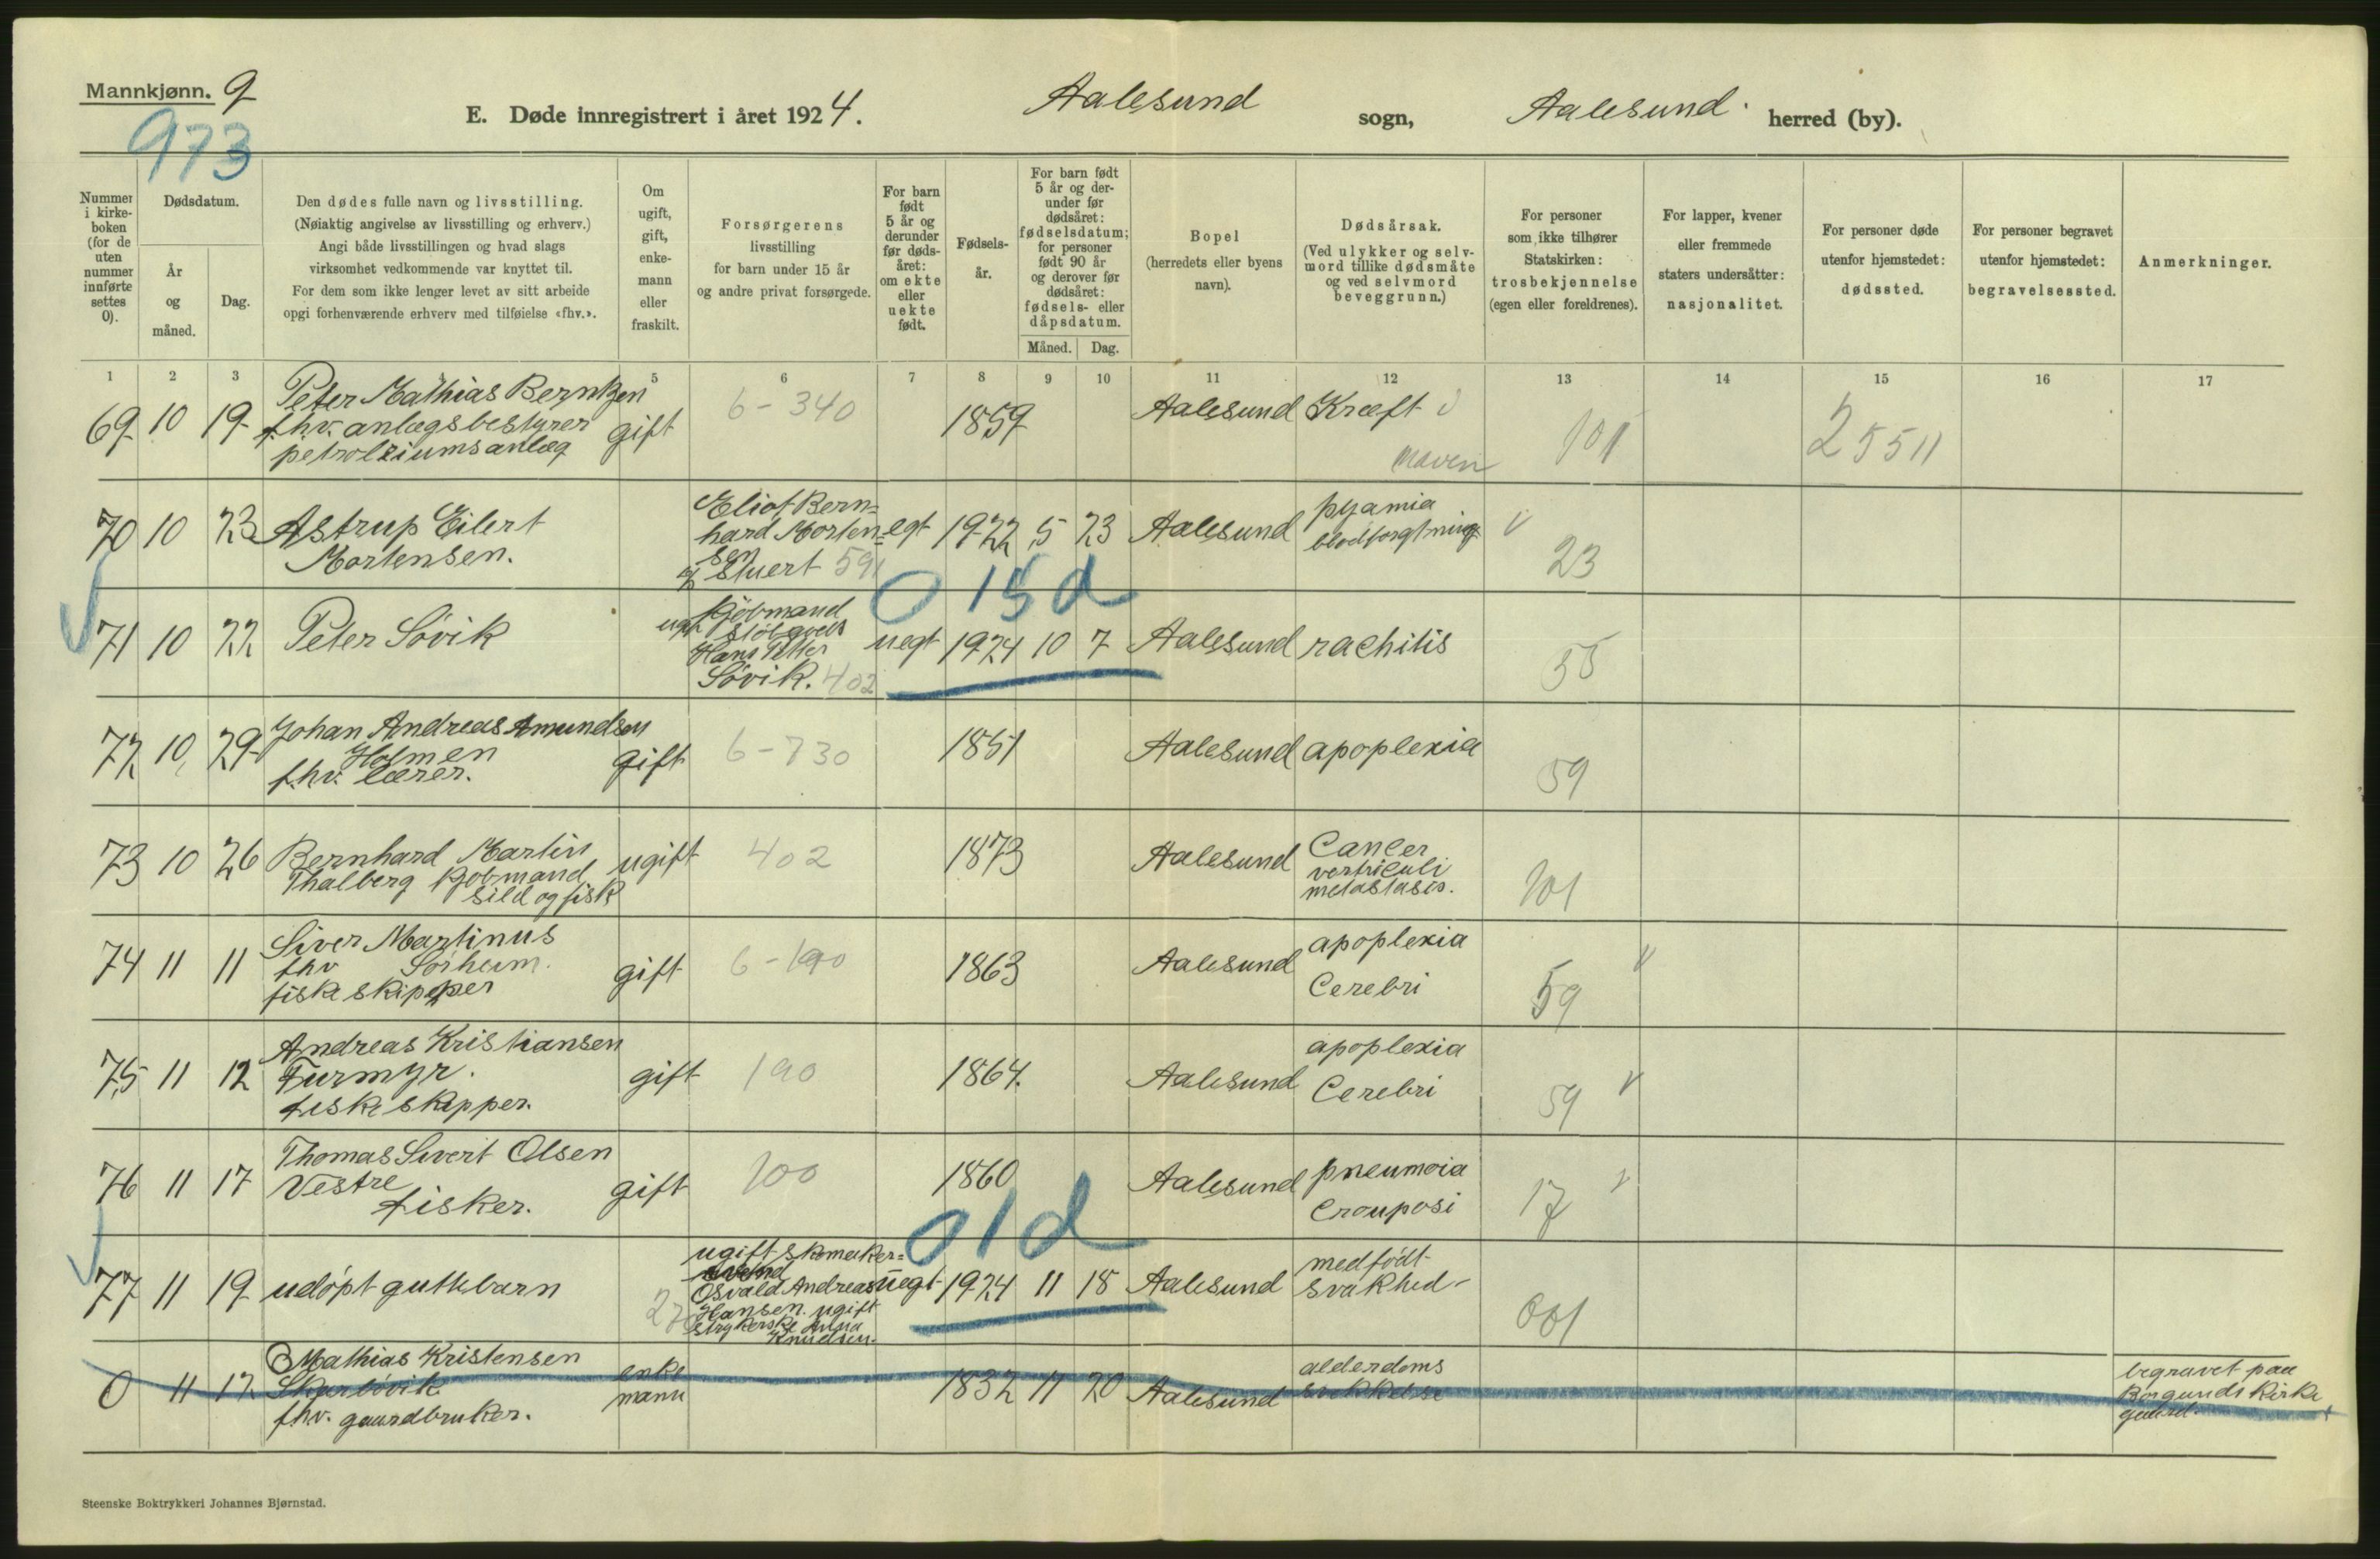 Mannkjønn. 9
973
E. Døde innregistrert i året 1924. Aalesund sogn, Aalesund herred (by).
Nummer i kirke-boken (for de uten nummer innførte settes 0).
Dødsdatum.
År og måned.
Dag.
Den dødes fulle navn og livsstilling.
(Nøiaktig angivelse av livsstilling og erhverv.)
Angi både livsstillingen og hvad slags
virksomhet vedkommende var knyttet til.
For dem som ikke lenger levet av sitt arbeide
opgi forhenværende erhverv med tilføielse «fhv.».
Om ugift, gift, enke-mann eller fraskilt.
Forsørgerens
livsstilling
for barn under 15 år
og andre privat forsørgede.
For barn født 5 år og derunder før døds-året: om ekte eller uekte født.
Fødsels-år.
For barn født 5 år og der-under før dødsåret: fødselsdatum; for personer født 90 år og derover før dødsåret: fødsels- eller dåpsdatum.
Måned. Dag.
Bopel
(herredets eller byens
navn).
Dødsårsak.
(Ved ulykker og selv-
mord tillike dødsmåte
og ved selvmord
beveggrunn.)
For personer
som ikke tilhører
Statskirken:
trosbekjennelse
(egen eller foreldrenes).
For lapper, kvener
eller fremmede
staters undersåtter:
nasjonalitet.
For personer døde
utenfor hjemstedet:
dødssted.
For personer begravet
utenfor hjemstedet:
begravelsessted.
Anmerkninger.
1 2 3 5 6 7 8 9 10 11 12 13 14 15 16 17
69 10 19 Peter Mathias Berntzen
fhv. anlægsbestyrer
petroleiumsanlæg
gift 6-340 1859 Aalesund Kræft
maven
101 25511
70 10 23 Astrup Eilert
Mortensen.
Eliot Bern=
hard Morten=
sen
Stuert 591
egt 1922 5 23 Aalesund pyamia
blodforgtning
23
0 15 d
71 10 22 Peter Sövik
ugt Kjöbmand
Hans Petter
Sövik. 402
uegt 1924 10 7 Aalesund rachitis
55
72 10 29 Johan Andreas Amundsen
Holmen
f.hv. lærer.
gift 6-730 1851 Aalesund apoplexia
59
73 10 26 Bernhard Martin
Thalberg Kjobmand
sild og fisk
ugift 402 1873 Aalesund Cancer
vertriculi
metastasis.
101
74 11 11 Siver Martinus
fhv Sörheim.
fiskeskipper
gift 6-190 1863 Aalesund apoplexia
Cerebri
59
75 11 12 Andreas Kristiansen
Furmyr.
fiskeskipper.
gift 190 1864. Aalesund apoplexia
Cerebri
59
76 11 17 Thomas Sivert Olsen
Vestre
fisker.
gift 100 1860 Aalesund pneumoia
Crouposi
17
0 1 d
77 11 19 udöpt guttebarn
ugift skomaker=
svend
Osvald Andreas
Hansen. ugift
strykerske
Knudsen.
uegt 1924 11 18 Aalesund medfödt
svakhed
001
0 11 12 Mathias Kristensen
Skarbövik
fhv. gaardbruker.
enke
mann
1832 11 20 Aalesund alderdoms
svekkelse
begravet paa
Borgunds Kirke
gaard.
Steenske Boktrykkeri Johannes Bjørnstad.